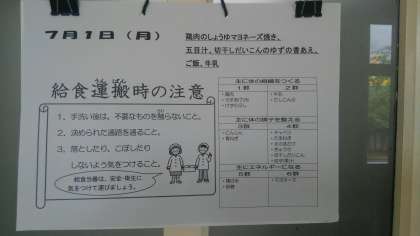 7月1日（月）
鶏肉のしょうゆマヨネーズ焼き、
五目汁、切干しだいこんのゆずの香あえ、
ご飯、牛乳
給食運搬時の注意
1，手洗い後は、不要なものを触らないこと。
2，決められた通路を通ること。
3，落としたり、こぼしたり
しないよう気をつけること。
給食当番は、安全・衛生に
気をつけて運びましょう。
主に体の組織をつくる
1群 2群
・鶏肉 ・牛乳
主に体の調子を整える
3群 4群
・にんじん ・キャベツ
主にエネルギーになる
5群 6群